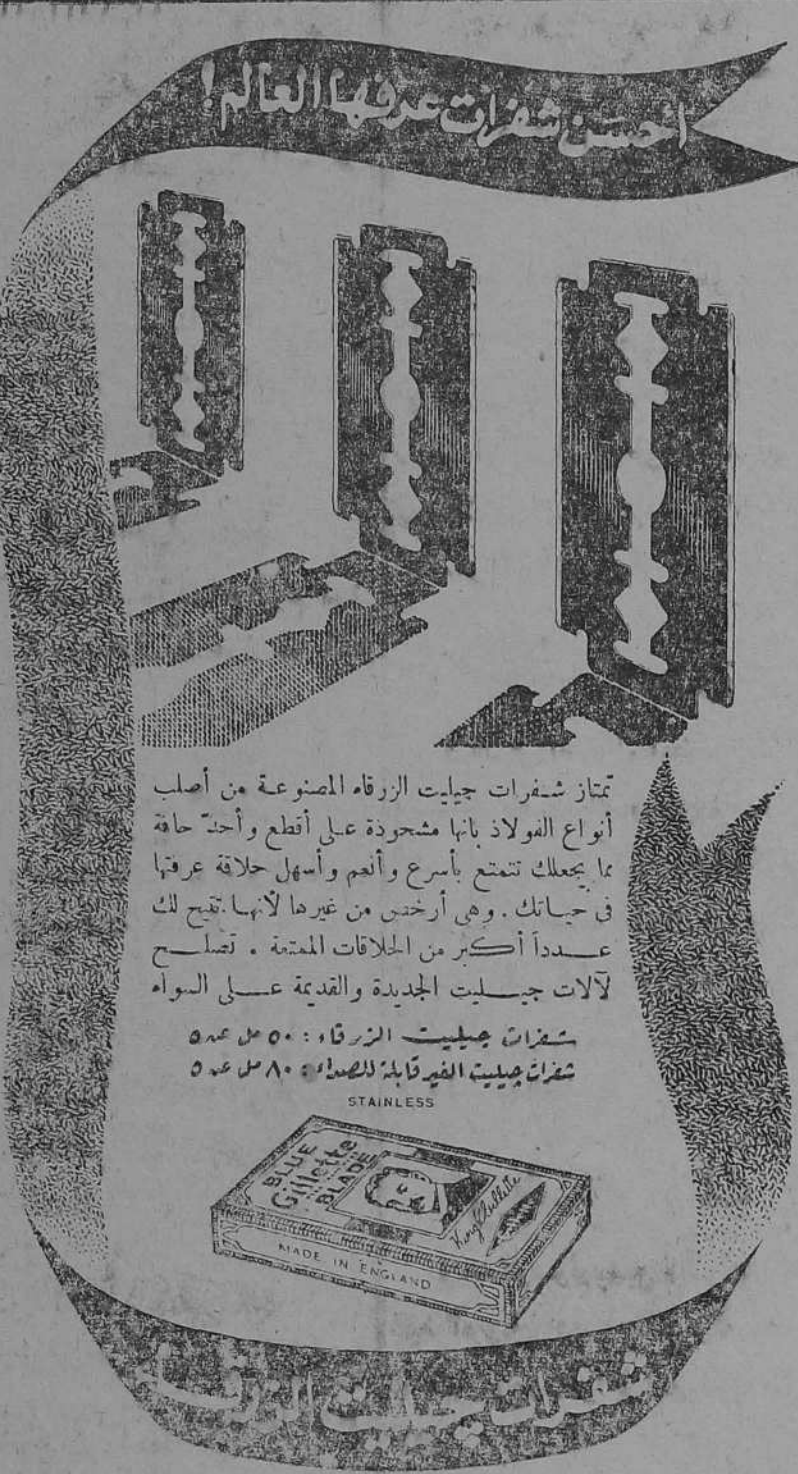 احسن شفرات عرفها العالم!
تمتاز شفرات جيليت الزرقاء المصنوعة من أصلب
أنواع الفولاذ بانها مشحوذة على أقطع وأحدّ حافة
مما يجعلك تتمتع بأسرع وأنعم وأسهل حلاقة عرفتها
فى حياتك . وهى أرخص من غيرها لأنها تتيح لك
عدداً أكبر من الحلاقات الممتعة . تصلح
لآلات جيليت الجديدة والقديمة على السواء
شفرات جيليت الزرقاء : ٥٠ مل عن ٥
شفرات جيليت الغير قابلة للصداء : ٨٠ مل عن ٥
STAINLESS
BLUE
Gillette
BLADE
King C Gillette
MADE IN ENGLAND
شفرات جيليت الزرقاء